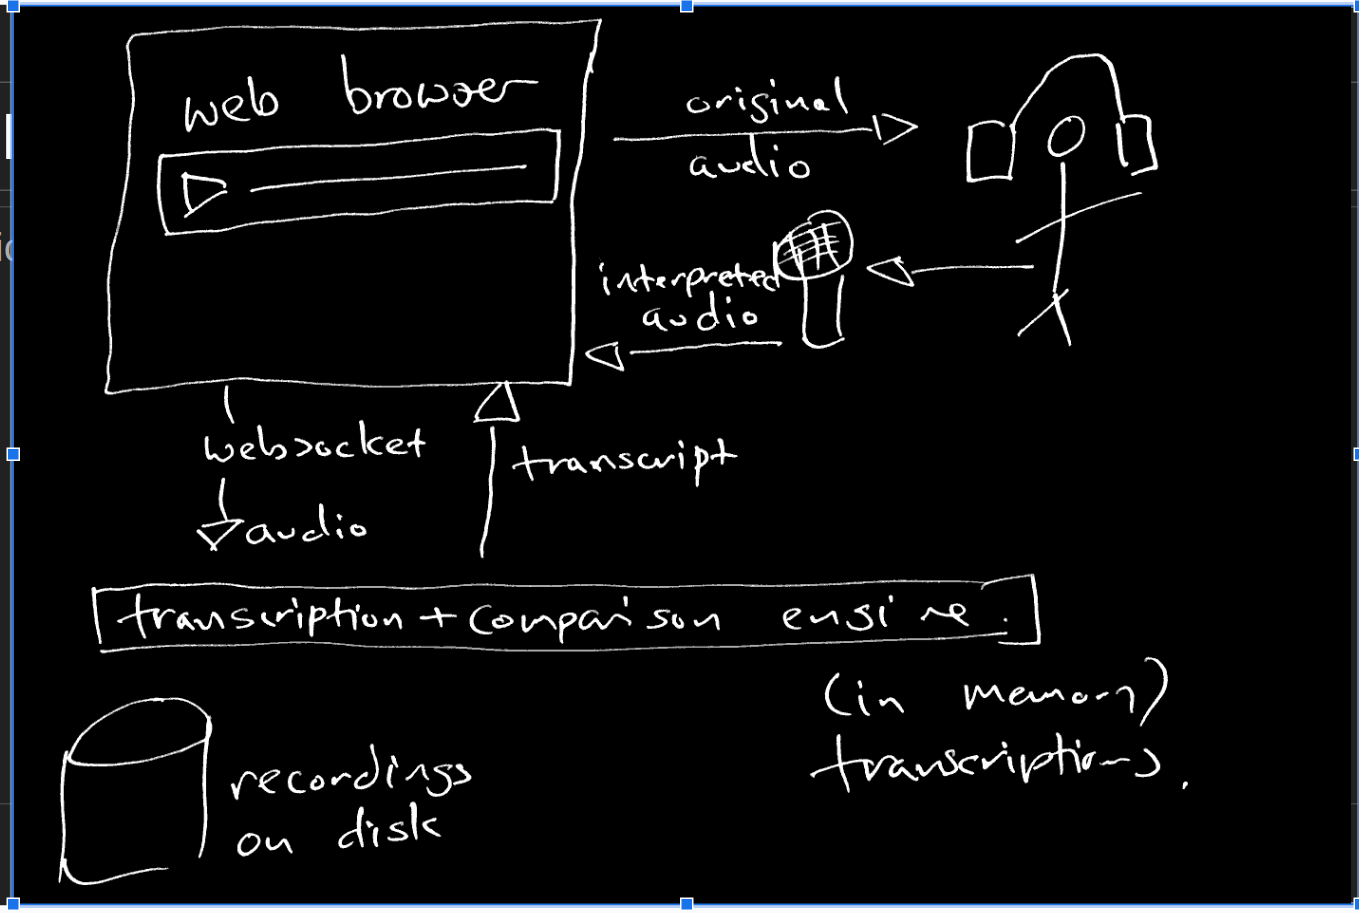 web browser
original
audio
interpreted
audio
websocket
transcript
audio
transcription + comparison engine.
(in memory)
transcriptions.
recordings
on disk